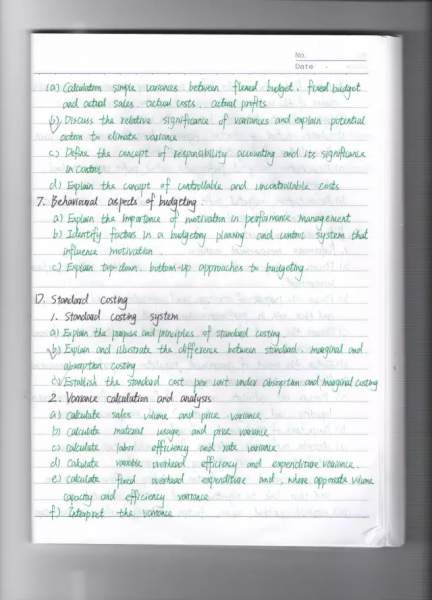 No.
Date
(a) Calculation simple variances between flexed budget, fixed budget
and actual sales, actual costs, actual profits
b) Discuss the relative significance of variances and explain potential
action to elimate variance
c) Define the concept of responsibility accounting and its significance
in control
d) Explain the concept of controllable and uncontrollable costs
7. Behavioural aspects of budgeting.
a) Explain the importance of motivation in performance management
b) Identify factors in a budgeting planning and control system that
influence motivation.
c) Explain top-down, bottom-up approaches to budgeting.
D. Standard costing
1. Standard costing system
a) Explain the purpose and principles of standard costing.
b) Explain and illustrate the difference between standard, marginal and
absorption costing
c) Establish the standard cost per unit under absorption and marginal costing
2. Variance calculation and analysis
a) calculate sales volume and price variance
b) calculate material usage and price variance
c) calculate labor efficiency and rate variance
d) Calculate variable overhead efficiency and expenditure variance.
e) calculate fixed overhead expenditure and, where approriate volume
capacity and efficiency variance
f) Interpret the variance